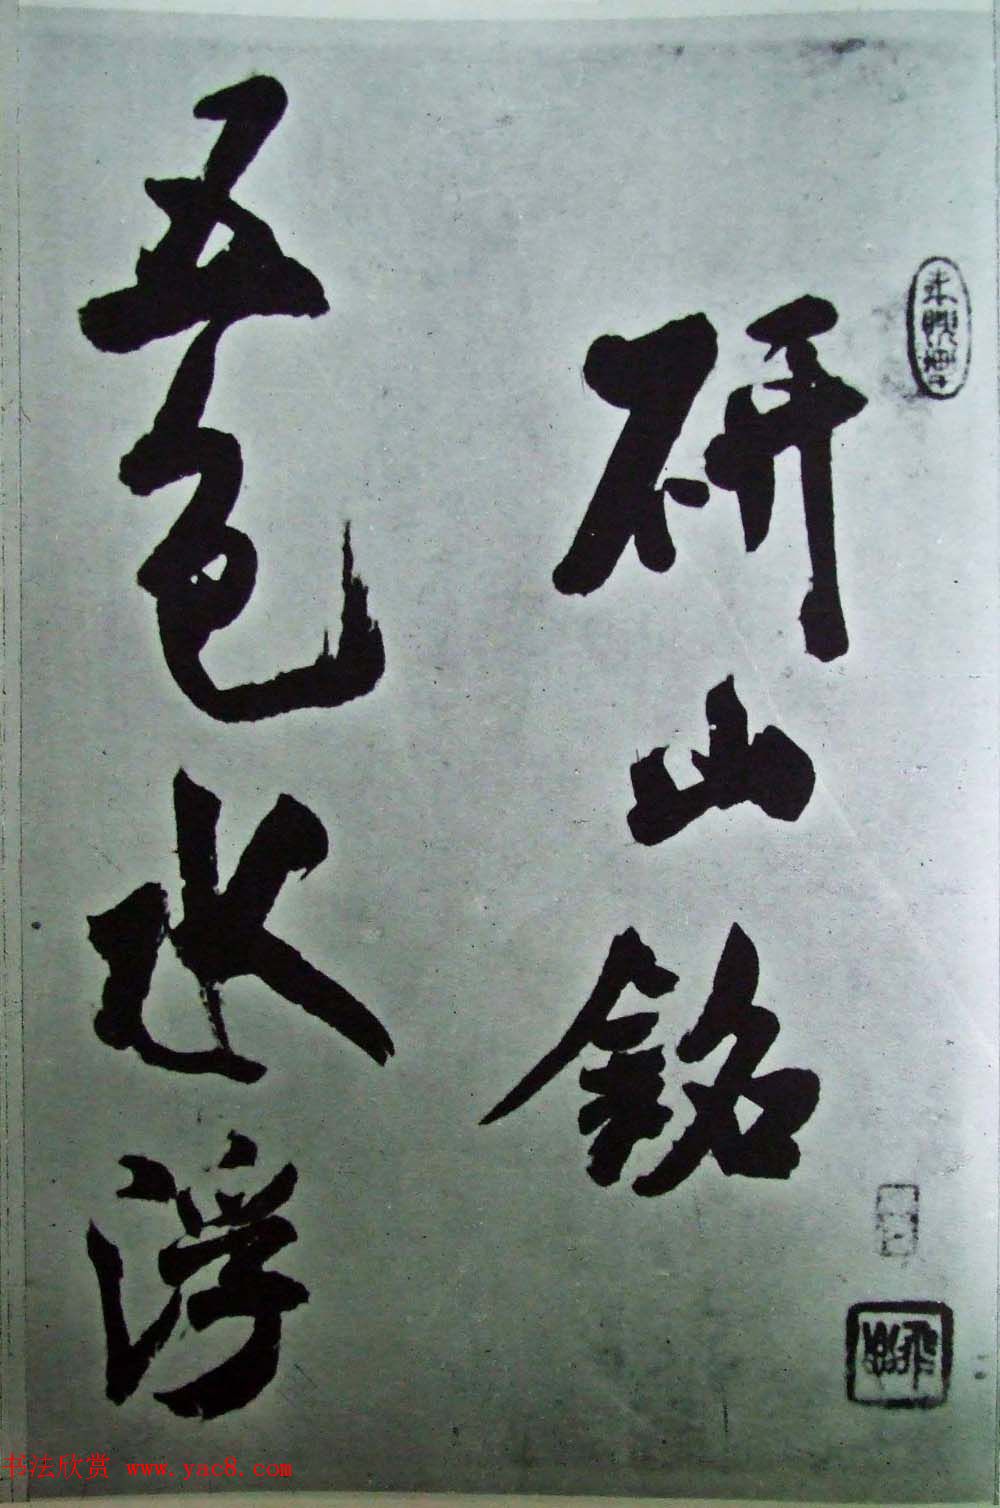 研山銘
五色水浮
书法欣赏 www.yac8.com